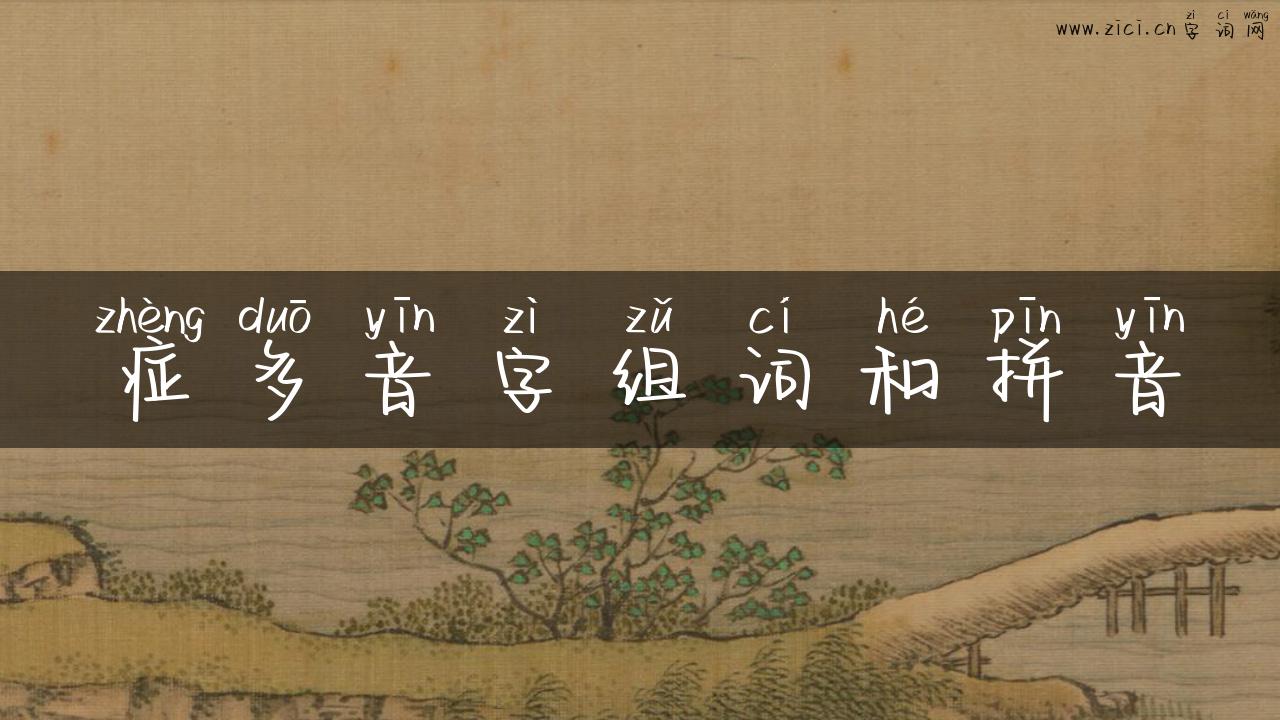 zì cí wǎng
www.zici.cn字词网
zhèng duō yīn zì zǔ cí hé pīn yīn
症多音字组词和拼音